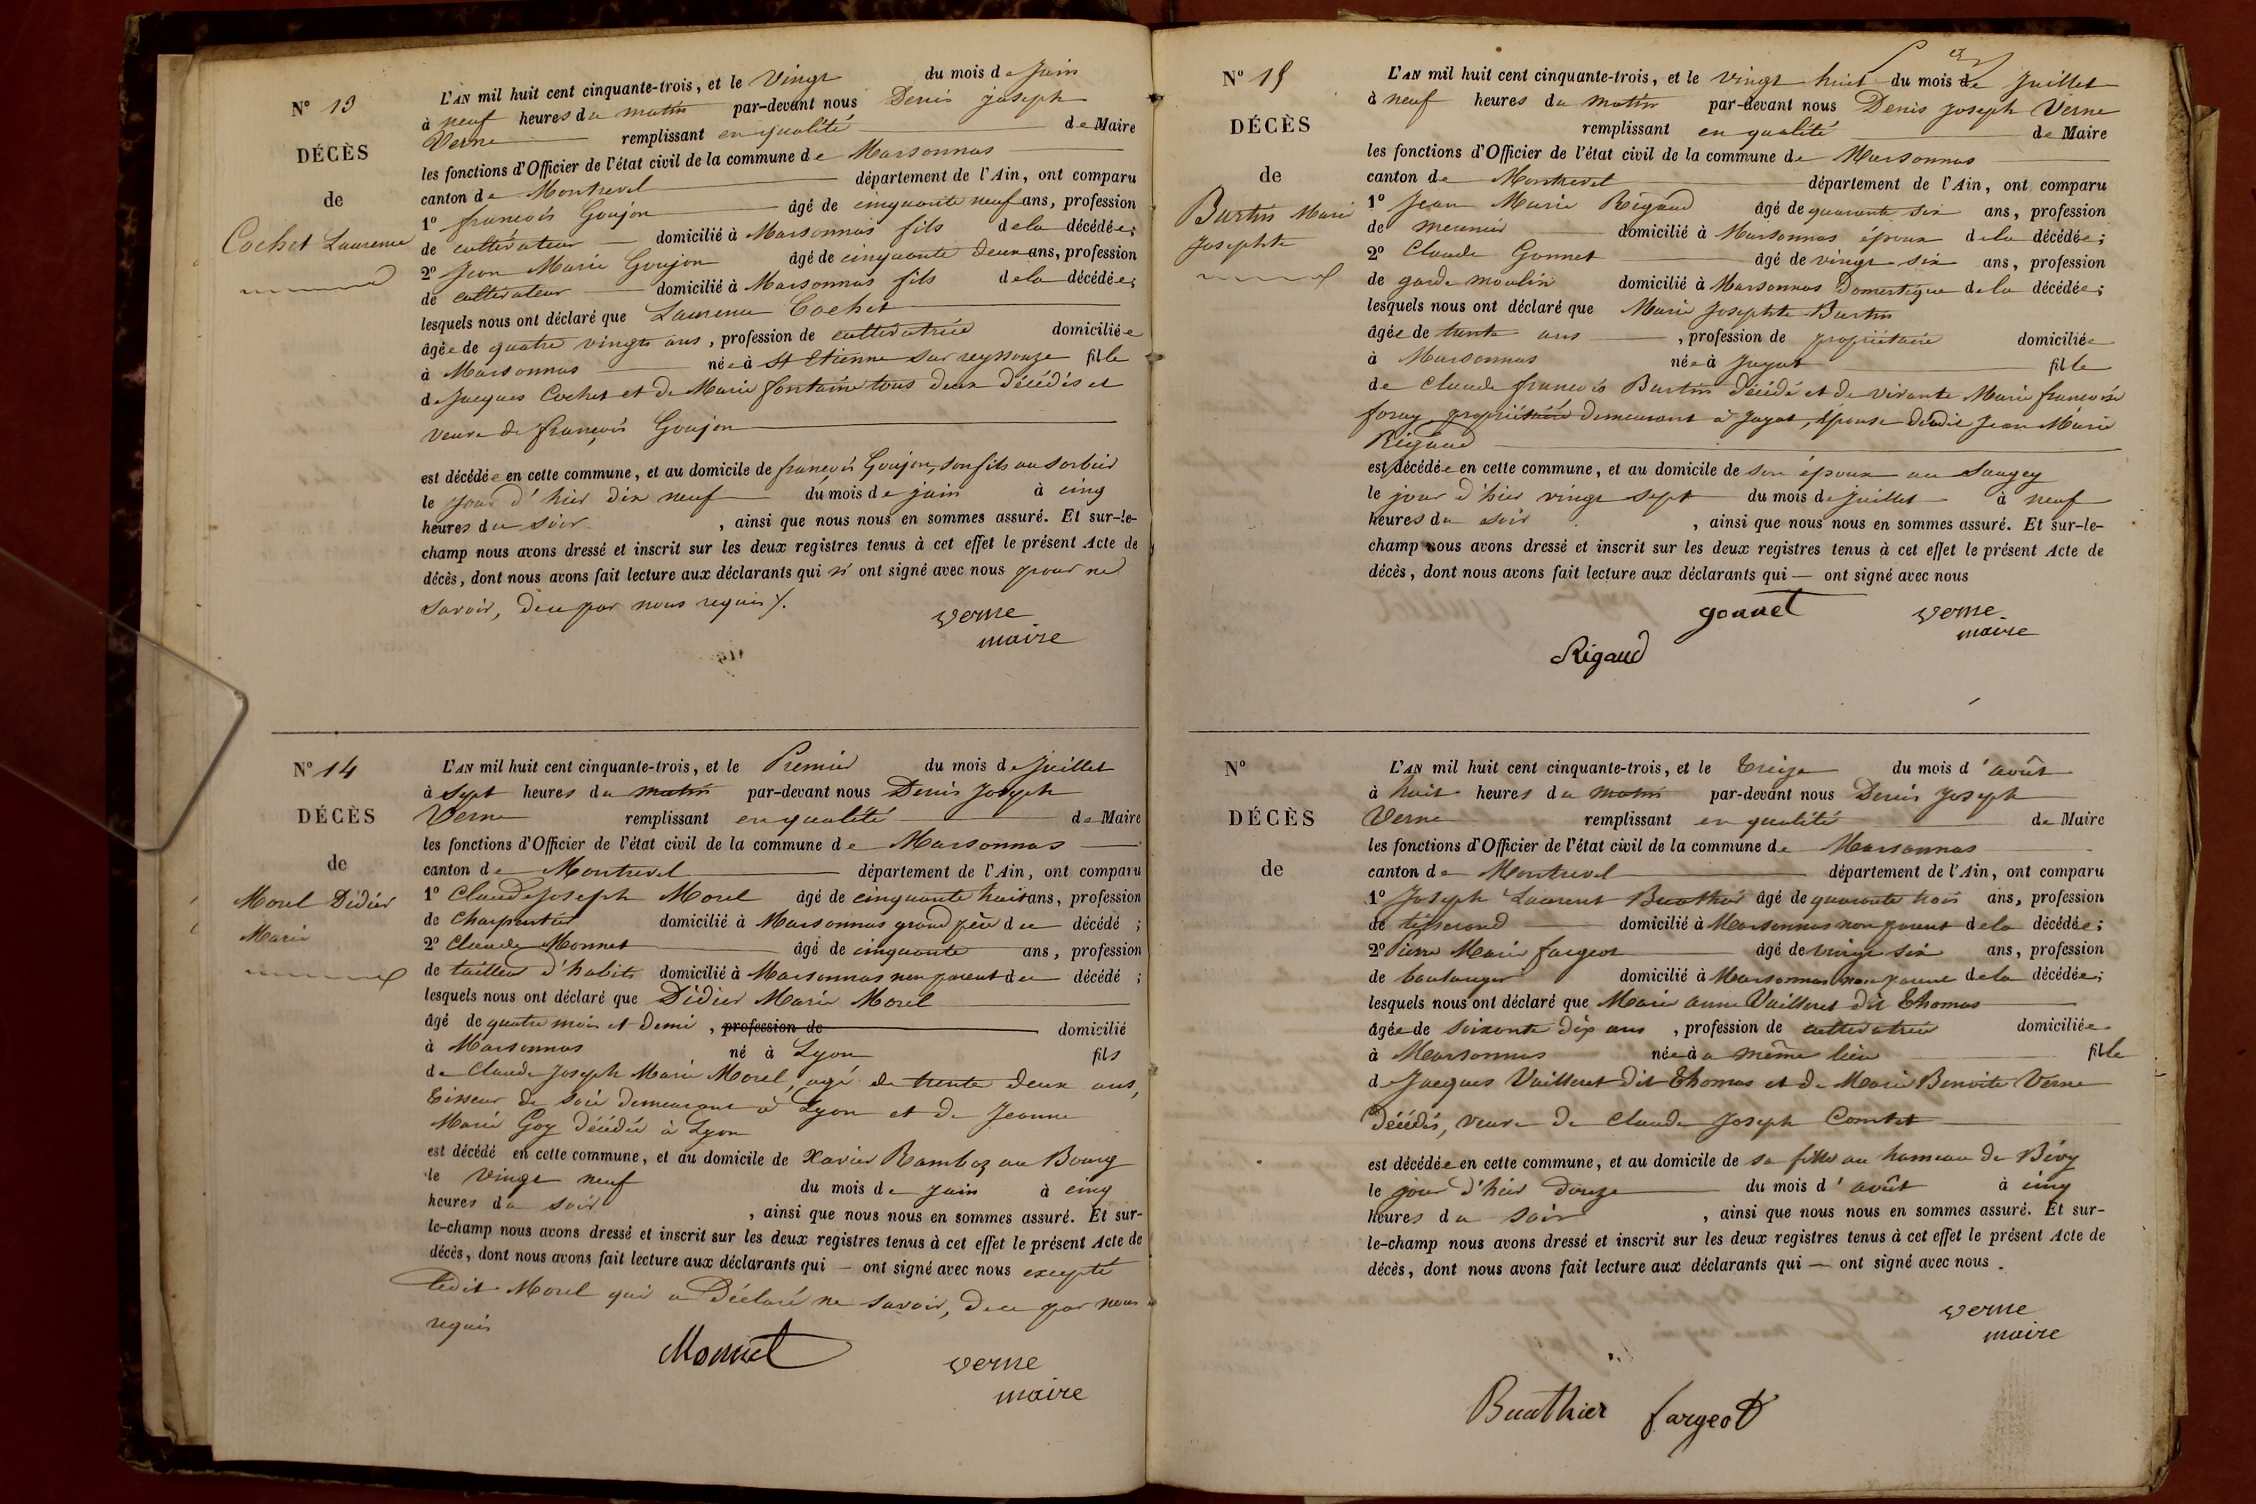 N° 13
DÉCÈS
de
Cochet Laurence
L'AN mil huit cent cinquante-trois, et le Vingt du mois de Juin
à neuf heures du matin par-devant nous Denis Joseph
Verne remplissant en qualité de Maire
les fonctions d'Officier de l'état civil de la commune de Marsonnas
canton de Montrevel département de l'Ain, ont comparu
1° françois Goujon âgé de cinquante neuf ans, profession
de cultivateur domicilié à Marsonnas fils de la décédée;
2° Jean Marie Goujon âgé de cinquante deux ans, profession
de cultivateur domicilié à Marsonnas fils de la décédée;
lesquels nous ont déclaré que Laurence Cochet
âgée de quatre vingts ans, profession de cultivatrice domiciliée
à Marsonnas née à St Etienne sur reyssouze fille
de Jacques Cochet et de Marie fontaine tous deux décédés et
veuve de françois Goujon
est décédée en cette commune, et au domicile de françois Goujon, son fils au sorbier
le jour d'hier dix neuf du mois de juin à cinq
heures du soir, ainsi que nous nous en sommes assuré. Et sur-le-
champ nous avons dressé et inscrit sur les deux registres tenus à cet effet le présent Acte de
décès, dont nous avons fait lecture aux déclarants qui n' ont signé avec nous pour ne
savoir, de ce par nous requis /.
verne
maire
N° 14
DÉCÈS
de
Morel Didier
Marie
L'AN mil huit cent cinquante-trois, et le Premier du mois de Juillet
à sept heures du matin par-devant nous Denis Joseph
Verne remplissant en qualité de Maire
les fonctions d'Officier de l'état civil de la commune de Marsonnas
canton de Montrevel département de l'Ain, ont comparu
1° Claude Joseph Morel âgé de cinquante huit ans, profession
de Charpentier domicilié à Marsonnas grand père du décédé ;
2° Claude Monnet âgé de cinquante ans, profession
de tailleur d'habits domicilié à Marsonnas non parent du décédé ;
lesquels nous ont déclaré que Didier Marie Morel
âgé de quatre mois et demi, profession de domicilié
à Marsonnas né à Lyon fils
de Claude Joseph Marie Morel, agé de trente deux ans,
tisseur de soie demeurant à Lyon et de Jeanne
Marie Goy décédée à Lyon
est décédé en cette commune, et au domicile de Xavier Ramboz au Bourg
le vingt neuf du mois de juin à cinq
heures du soir, ainsi que nous nous en sommes assuré. Et sur-
le-champ nous avons dressé et inscrit sur les deux registres tenus à cet effet le présent Acte de
décès, dont nous avons fait lecture aux déclarants qui — ont signé avec nous excepté
ledit Morel qui a Déclaré ne savoir, de ce par nous
requis
Monnet
verne
maire
N° 15
DÉCÈS
de
Burtin Marie
Josephte
L'AN mil huit cent cinquante-trois, et le vingt huit du mois de Juillet
à neuf heures du matin par-devant nous Denis Joseph Verne
remplissant en qualité de Maire
les fonctions d'Officier de l'état civil de la commune de Marsonnas
canton de Montrevel département de l'Ain, ont comparu
1° Jean Marie Rigaud âgé de quarante six ans, profession
de meunier domicilié à Marsonnas époux de la décédée;
2° Claude Gonnet âgé de vingt six ans, profession
de garde moulin domicilié à Marsonnas Domestique de la décédée;
lesquels nous ont déclaré que Marie Josephte Burtin
âgée de trente ans, profession de propriétaire domiciliée
à Marsonnas née à Jayat fille
de Claude françois Burtin décédé et de vivante Marie françoise
foray propriétaire demeurant à Jayat, épouse dudit Jean Marie
Rigaud
est décédée en cette commune, et au domicile de son époux au Saugey
le jour d'hier vingt sept du mois de Juillet à neuf
heures du soir, ainsi que nous nous en sommes assuré. Et sur-le-
champ nous avons dressé et inscrit sur les deux registres tenus à cet effet le présent Acte de
décès, dont nous avons fait lecture aux déclarants qui — ont signé avec nous
gonnet
verne
maire
Rigaud
N°
DÉCÈS
de
L'AN mil huit cent cinquante-trois, et le Treize du mois d'août
à huit heures du matin par-devant nous Denis Joseph
Verne remplissant en qualité de Maire
les fonctions d'Officier de l'état civil de la commune de Marsonnas
canton de Montrevel département de l'Ain, ont comparu
1° Joseph Laurent Buathier âgé de quarante trois ans, profession
de tisserand domicilié à Marsonnas non parent de la décédée;
2° Pierre Marie fargeot âgé de vingt six ans, profession
de boulanger domicilié à Marsonnas non parent de la décédée;
lesquels nous ont déclaré que Marie anne Vailleret dit Thomas
âgée de soixante dix ans, profession de cultivatrice domiciliée
à Marsonnas née à a même lieu fille
de Jacques Vailleret dit Thomas et de Marie Benoite Verne
Décédés, veuve de Claude Joseph Comtet
est décédée en cette commune, et au domicile de sa fille au hameau de Bévy
le jour d'hier Douze du mois d'août à cinq
heures du soir, ainsi que nous nous en sommes assuré. Et sur-
le-champ nous avons dressé et inscrit sur les deux registres tenus à cet effet le présent Acte de
décès, dont nous avons fait lecture aux déclarants qui — ont signé avec nous.
verne
maire
Buathier fargeot